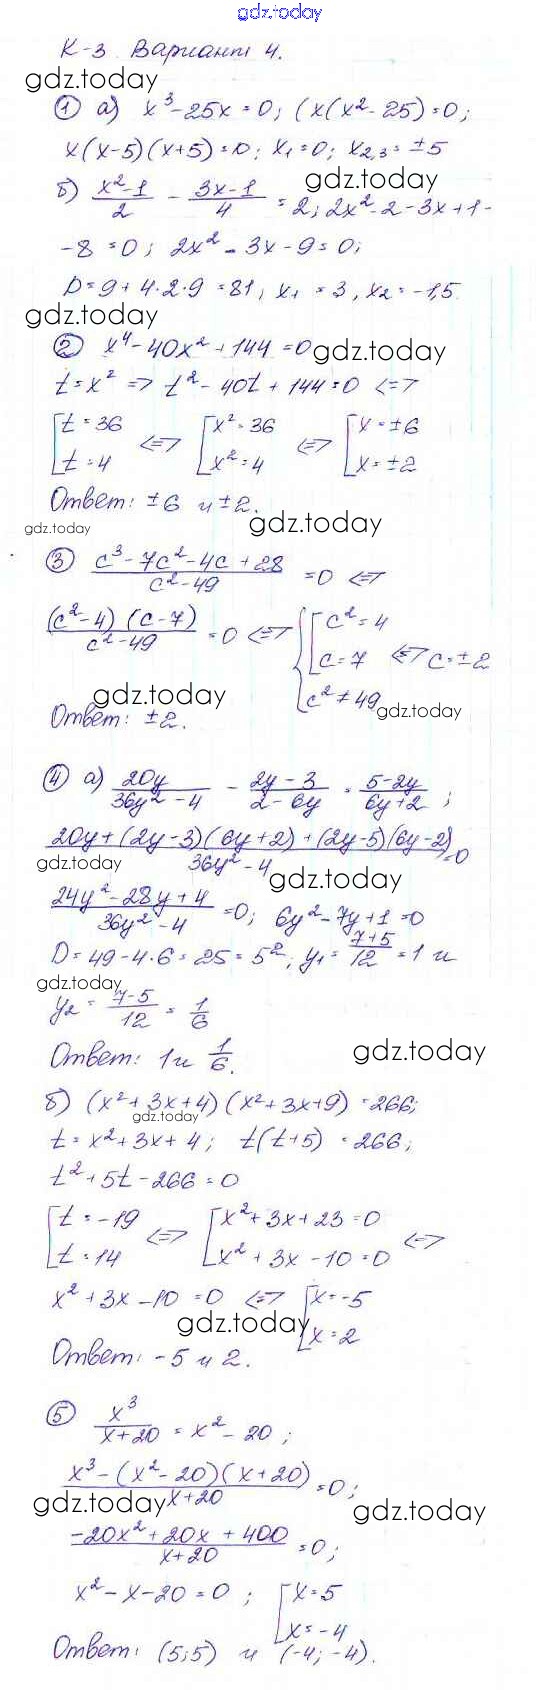 gdz.today
К-3 Вариант 4.
gdz.today
① а) x³-25x=0; (x(x²-25)=0;
x(x-5)(x+5)=0; x₁=0; x₂,₃=±5
gdz.today
б) (x²-1)/2 - (3x-1)/4 = 2; 2x²-2-3x+1-
-8=0; 2x²-3x-9=0;
D=9+4·2·9=81; x₁=3, x₂=-1,5
gdz.today gdz.today
② x⁴-40x²+144=0
t=x² => t²-40t+144=0 <=>
[t=36 <=> [x²=36 <=> [x=±6
[t=4 [x²=4 [x=±2
Ответ: ±6 и ±2.
gdz.today gdz.today
③ (c³-7c²-4c+28)/(c²-49) =0 <=>
((c²-4)(c-7))/(c²-49) =0 <=> { [c²=4
[c=7 <=> c=±2
c²≠49
gdz.today gdz.today
Ответ: ±2.
gdz.today
④ а) 20y/(36y²-4) - (2y-3)/(2-6y) = (5-2y)/(6y+2);
(20y+(2y-3)(6y+2)+(2y-5)(6y-2))/(36y²-4) =0
gdz.today gdz.today
(24y²-28y+4)/(36y²-4) =0; 6y²-7y+1=0
D=49-4·6=25=5²; y₁=(7+5)/12=1 и
gdz.today
y₂=(7-5)/12=1/6
Ответ: 1 и 1/6.
gdz.today
б) (x²+3x+4)(x²+3x+9)=266;
gdz.today
t=x²+3x+4; t(t+5)=266;
t²+5t-266=0
[t=-19 <=> [x²+3x+23=0 <=>
[t=14 [x²+3x-10=0
x²+3x-10=0 <=> [x=-5
[x=2
gdz.today
Ответ: -5 и 2.
⑤ x³/(x+20) = x²-20;
(x³-(x²-20)(x+20))/(x+20) =0;
gdz.today gdz.today
(-20x²+20x+400)/(x+20) =0;
x²-x-20=0; [x=5
[x=-4
Ответ: (5;5) и (-4;-4).